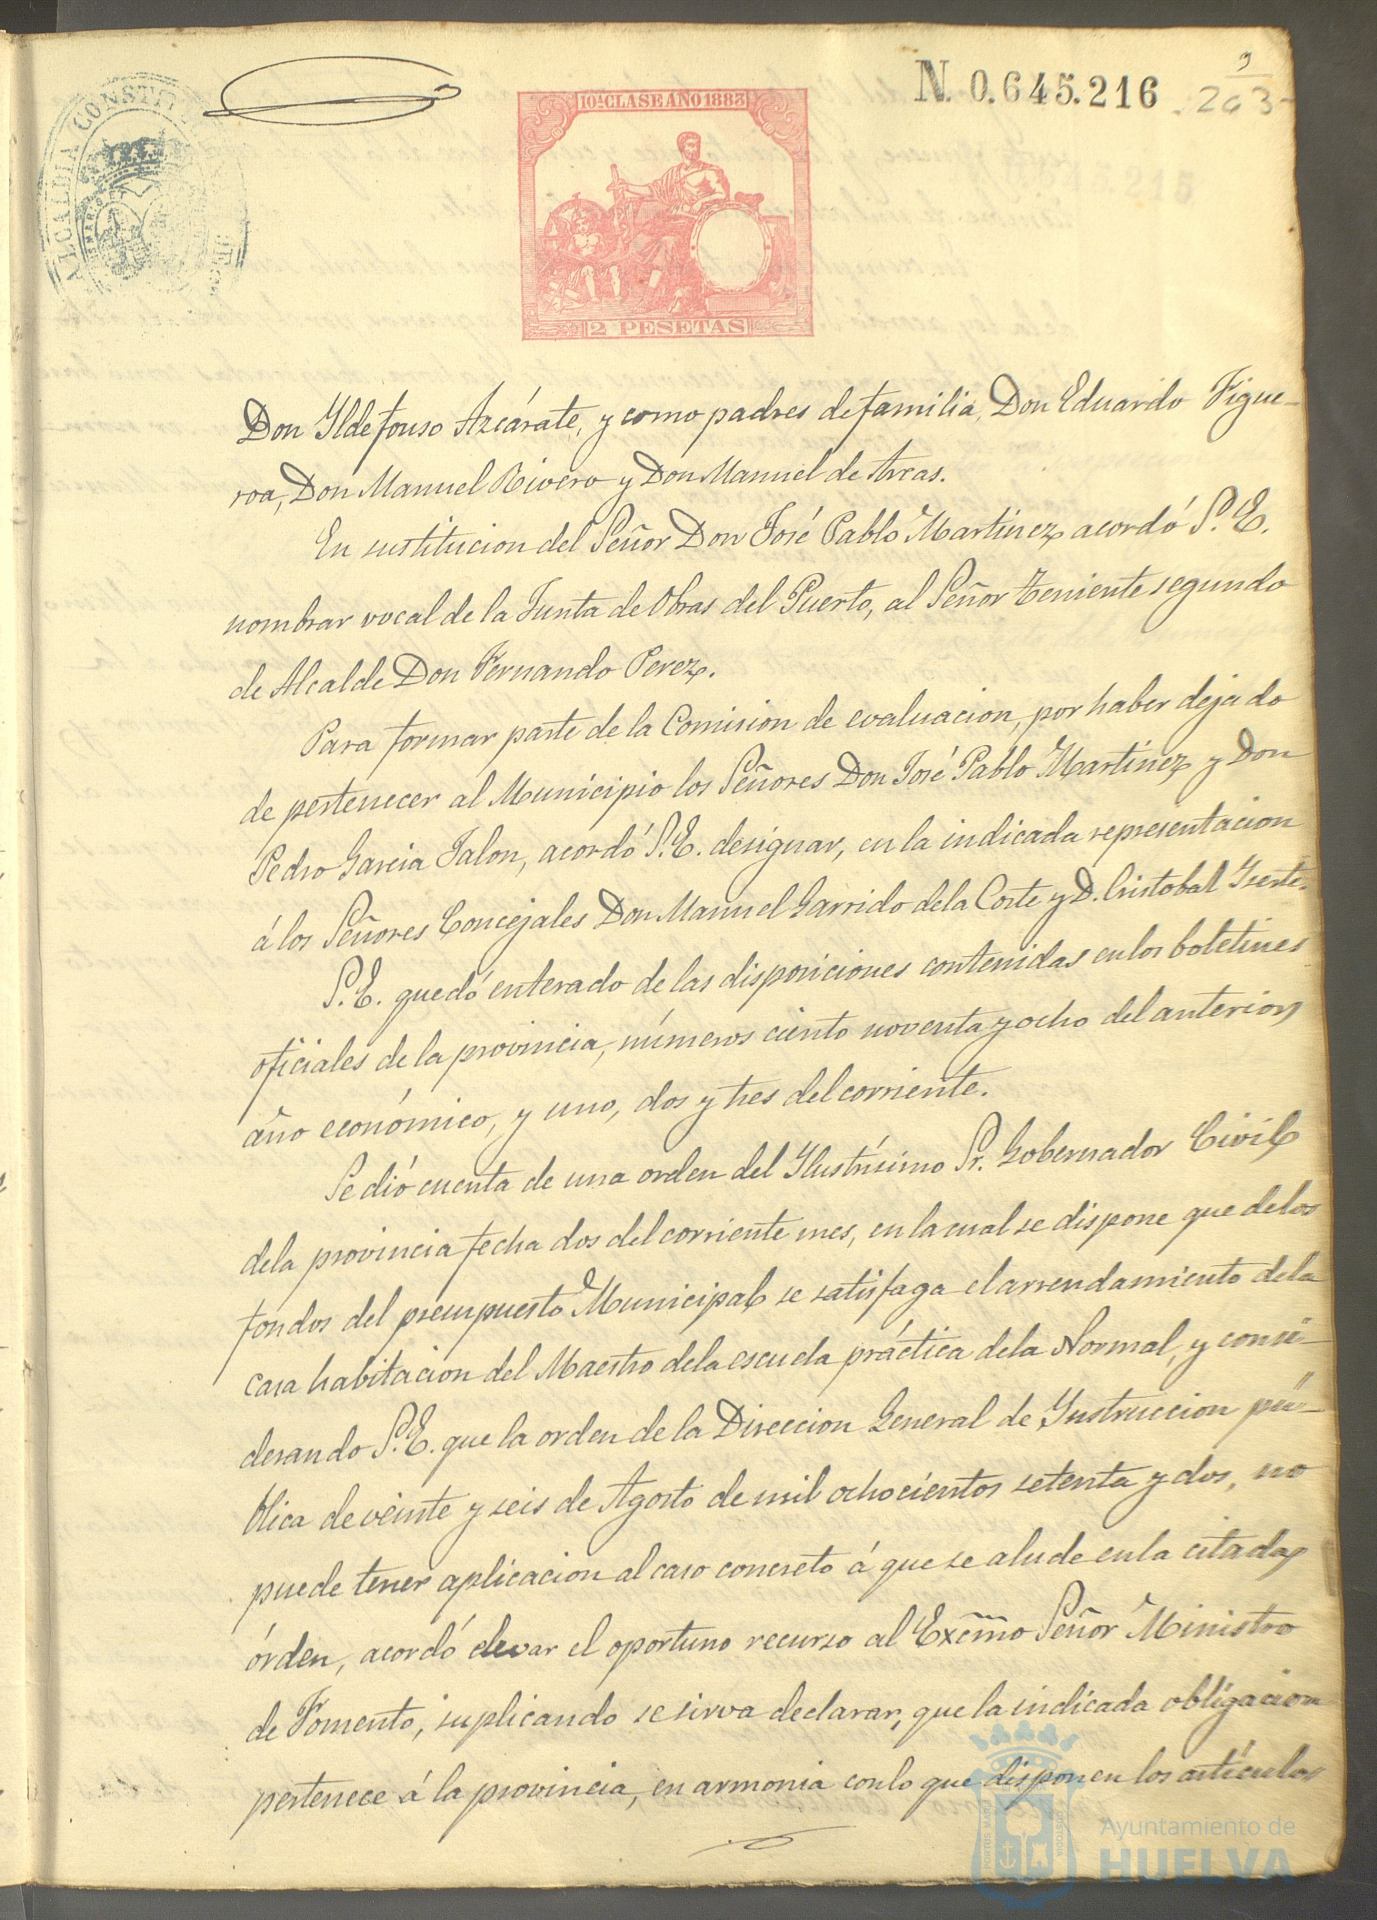 10ª CLASE AÑO 1883
N. 0.645.216
203
ALCALDIA CONSTIT
2 PESETAS
Don Yldefonso Azcárate, y como padres de familia, Don Eduardo Figue-
roa, Don Manuel Rivero y Don Manuel de Arcas.
En sustitucion del Señor Don José Pablo Martinez acordó S. E.
nombrar vocal de la Junta de Obras del Puerto, al Señor Teniente segundo
de Alcalde Don Fernando Perez.
Para formar parte de la Comision de evaluacion, por haber dejado
de pertenecer al Municipio los Señores Don José Pablo Martinez y Don
Pedro Garcia Jalon, acordó S. E. designar, en la indicada representacion
á los Señores Concejales Don Manuel Garrido de la Corte y D. Cristobal Yserte.
S. E. quedó enterado de las disposiciones contenidas en los boletines
oficiales de la provincia, números ciento noventa y ocho del anterior
año económico, y uno, dos y tres del corriente.
Se dió cuenta de una orden del Ylustrísimo Sr. Gobernador Civil
de la provincia fecha dos del corriente mes, en la cual se dispone que de los
fondos del presupuesto Municipal se satisfaga el arrendamiento de la
casa habitacion del Maestro de la escuela práctica de la Normal, y consi-
derando S. E. que la orden de la Direccion General de Ynstruccion pú-
blica de veinte y seis de Agosto de mil ochocientos setenta y dos, no
puede tener aplicacion al caso concreto á que se alude en la citada
órden, acordó elevar el oportuno recurso al Excmo Señor Ministro
de Fomento, suplicando se sirva declarar, que la indicada obligacion
pertenece á la provincia, en armonia con lo que disponen los artículos
Ayuntamiento de
HUELVA